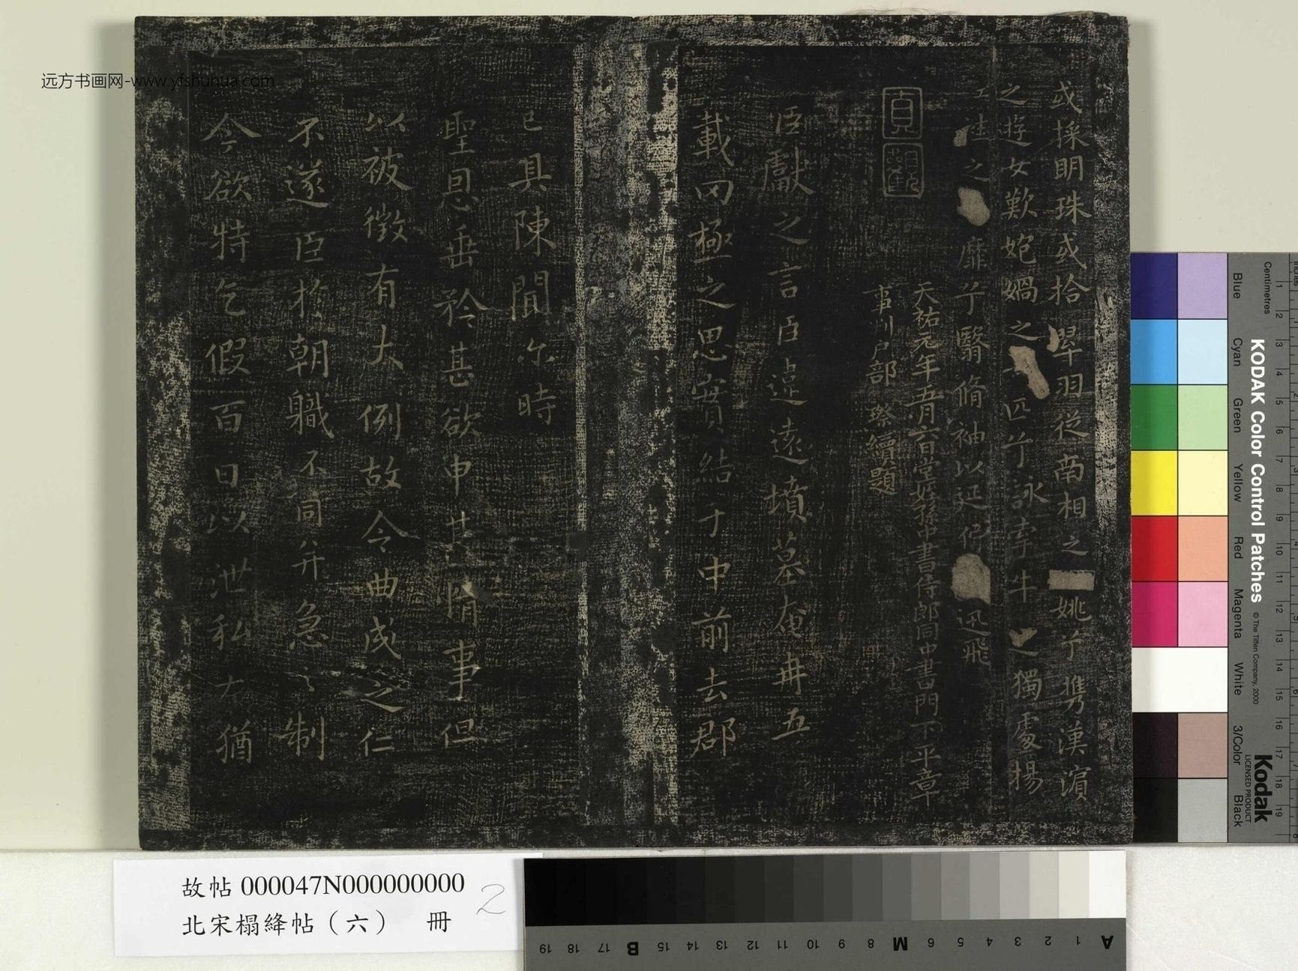 或採明珠或拾翠羽從南相之姚兮攜漢濱
之遊女歎匏媧之匹兮詠牽牛之獨處揚
之靡兮翳脩袖以延佇迅飛
貞觀
天祐元年
中書侍郎同中書門下平章
事判戶部 璨續題
臣獻之言臣違遠墳墓奄冉五
載罔極之思實結于中前去郡
已具陳聞尔時
聖恩垂矜甚欲申其情事但
以被徵有大例故令曲成之仁
不遂臣於朝職不同幷急之制
今欲特乞假百日以泄私大猶
远方书画网-www.yfshuhua.com
故帖 000047N000000000
北宋榻絳帖（六） 冊
2
Centimetres
KODAK Color Control Patches
© The Tiffen Company, 2000
Kodak
LICENSED PRODUCT
Blue Cyan Green Yellow Red Magenta White 3/Color Black
1 2 3 4 5 6 7 8 9 10 11 12 13 14 15 16 17 18 19
A 1 2 3 4 5 6 M 8 9 10 11 12 13 14 15 B 17 18 19